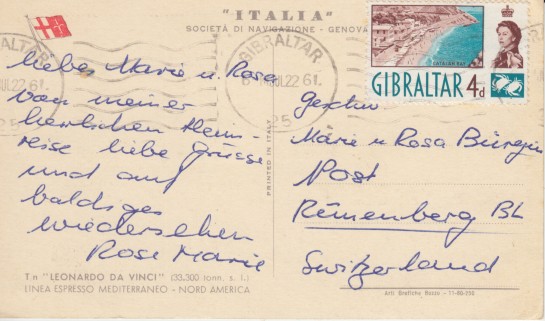 "ITALIA"
SOCIETÀ DI NAVIGAZIONE - GENOVA
GIBRALTAR
JUL 22 61
GIBRALTAR
JUL 22 61
CATALAN BAY
GIBRALTAR 4d
Liebes Marie u. Rosa
Von meiner
herrlichen Heim-
reise liebe Grüsse
und auf
baldiges
wiedersehen
Rose Marie
PRINTED IN ITALY
Geschw
Marie u Rosa Bürgin
Post
Rünenberg BL
Switzerland
T.n "LEONARDO DA VINCI" (33,300 tonn. s. l.)
LINEA ESPRESSO MEDITERRANEO - NORD AMERICA
Arti Grafiche